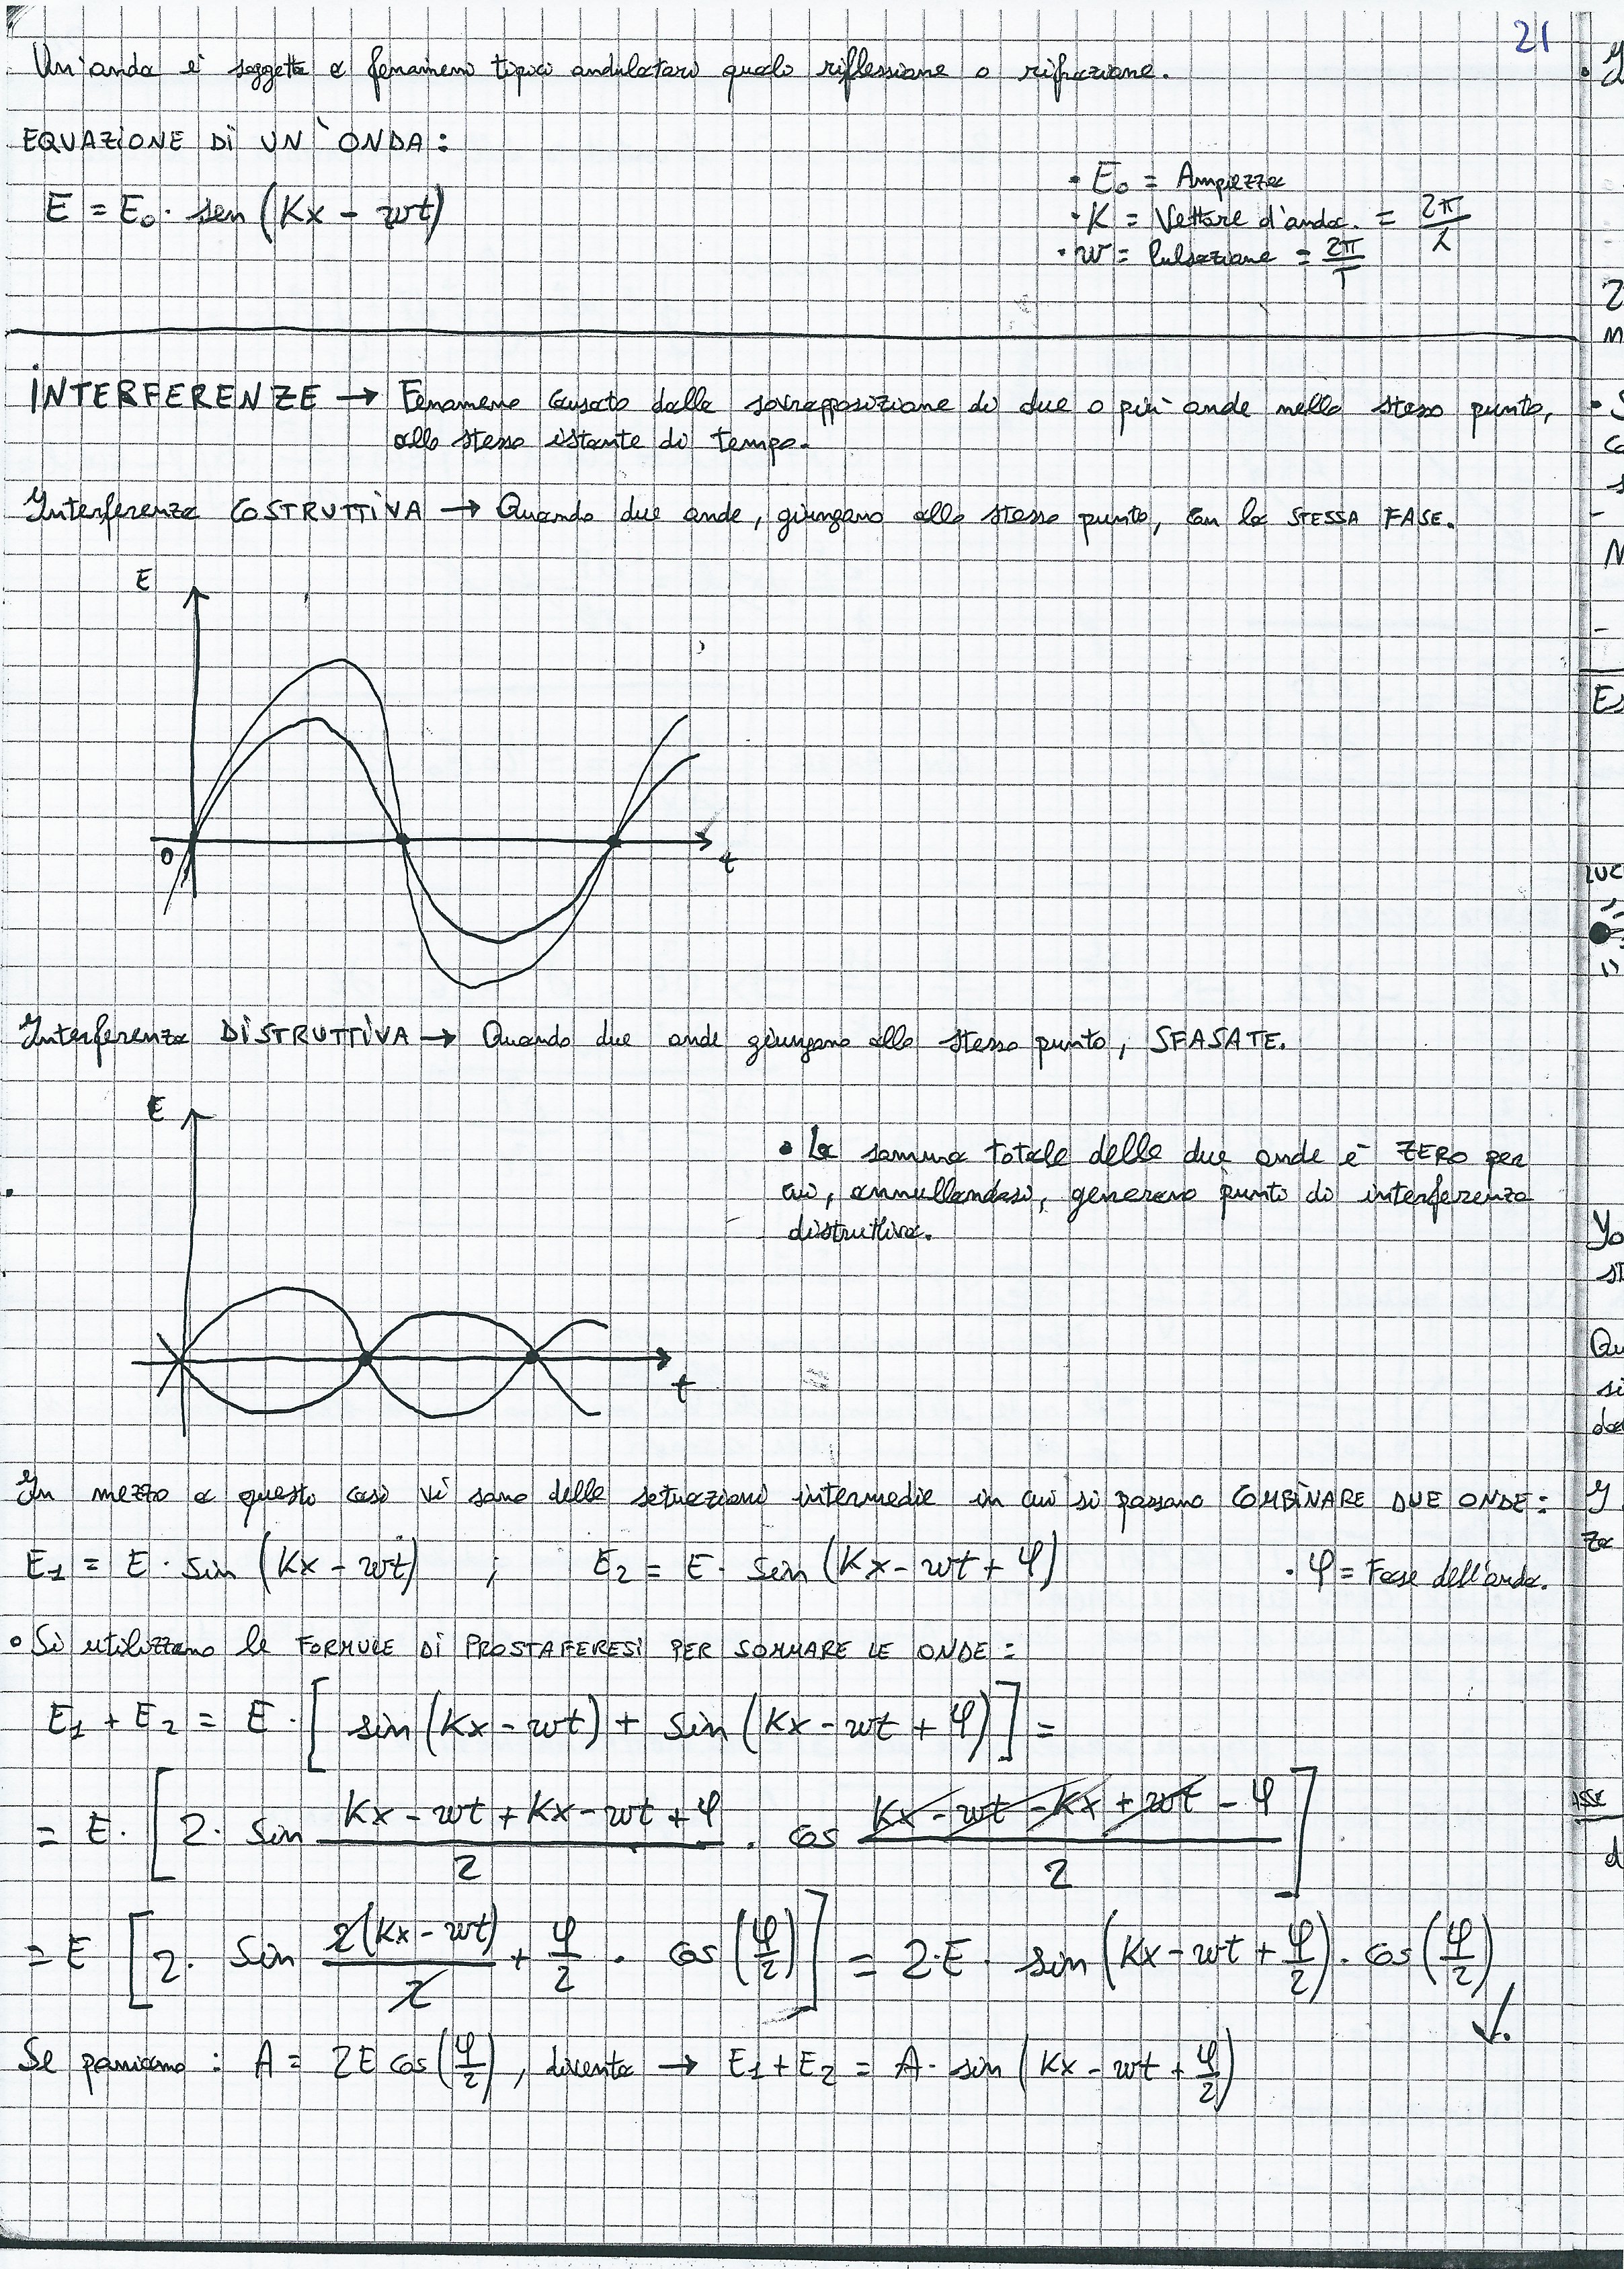 21
Un'onda è soggetta a fenomeni tipici ondulatori quali riflessione o rifrazione.
EQUAZIONE DI UN'ONDA:
E = E₀ · sen (Kx - wt)
• E₀ = Ampiezza
• K = Vettore d'onda. = 2π/λ
• w = Pulsazione = 2π/T
INTERFERENZE → Fenomeno causato dalla sovrapposizione di due o più onde nello stesso punto,
allo stesso istante di tempo.
Interferenza COSTRUTTIVA → Quando due onde, giungono allo stesso punto, con la STESSA FASE.
E
0
t
Interferenza DISTRUTTIVA → Quando due onde giungono allo stesso punto, SFASATE.
E
• La somma totale delle due onde è ZERO per
cui, annullandosi, generano punti di interferenza
distruttiva.
t
In mezzo a questi casi vi sono delle setuazioni intermedie in cui si possono COMBINARE DUE ONDE:
E₁ = E · sin (Kx - wt) ; E₂ = E · sin (Kx - wt + φ) • φ = Fase dell'onda.
• Si utilizzano le FORMULE DI PROSTAFERESI PER SOMMARE LE ONDE:
E₁ + E₂ = E · [ sin (Kx - wt) + sin (Kx - wt + φ) ] =
= E · [ 2 · sin (Kx - wt + Kx - wt + φ)/2 · cos (Kx - wt - Kx + wt - φ)/2 ]
= E [ 2 · sin 2(Kx - wt)/2 + φ/2 · cos (φ/2) ] = 2·E · sin (Kx - wt + φ/2) · cos (φ/2)
Se poniamo : A = 2E cos (φ/2), diventa → E₁ + E₂ = A · sin (Kx - wt + φ/2)